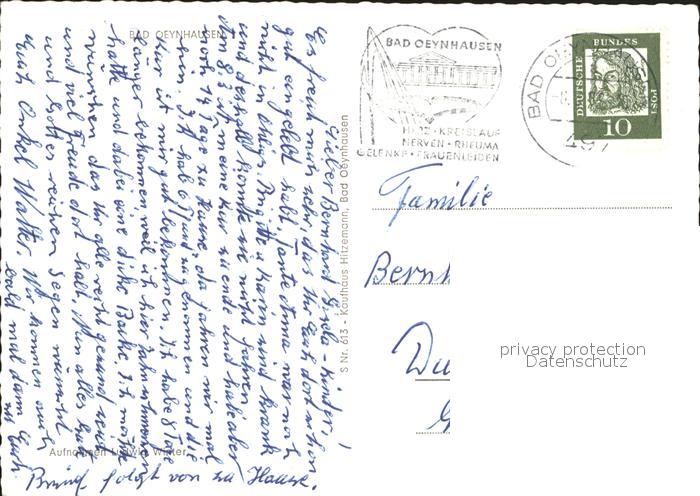 BAD OEYNHAUSEN
Lieber Bernhard, Gisela + Kinder!
Es freut mich sehr, das Ihr Euch dort schon
gut eingelebt habt. Tante Anna war noch
nicht in Ahlen. Brigitte u. Karin sind krank
und deshalb konnte sie nicht fahren.
Den 8. ist meine Kur zu ende und habe aber
noch 14 Tage zu Hause, da fahren wir mal
hin. Ich hab 6 Pfund zugenommen und die
Kur ist mir gut bekommen. Ich habe 8 Tage
länger bekommen weil ich hier
hatte und dabei eine dicke Backe. Ich möchte
wünschen das Ihr alle recht gesund seid
und viel Freude dort habt. Nun alles Gute
und Gottes reichen Segen wünscht
Euch Onkel Walter. Wir kommen auch
bald mal dann Euch
Brief folgt von zu Hause.
Aufnahmen Ludwig Winter
S Nr. 613 - Kaufhaus Hitzemann, Bad Oeynhausen
BAD OEYNHAUSEN
HERZ · KREISLAUF
NERVEN · RHEUMA
GELENKE · FRAUENLEIDEN
BAD OEYN
497
DEUTSCHE BUNDES POST
10
Familie
Bernh
Du
G
privacy protection
Datenschutz